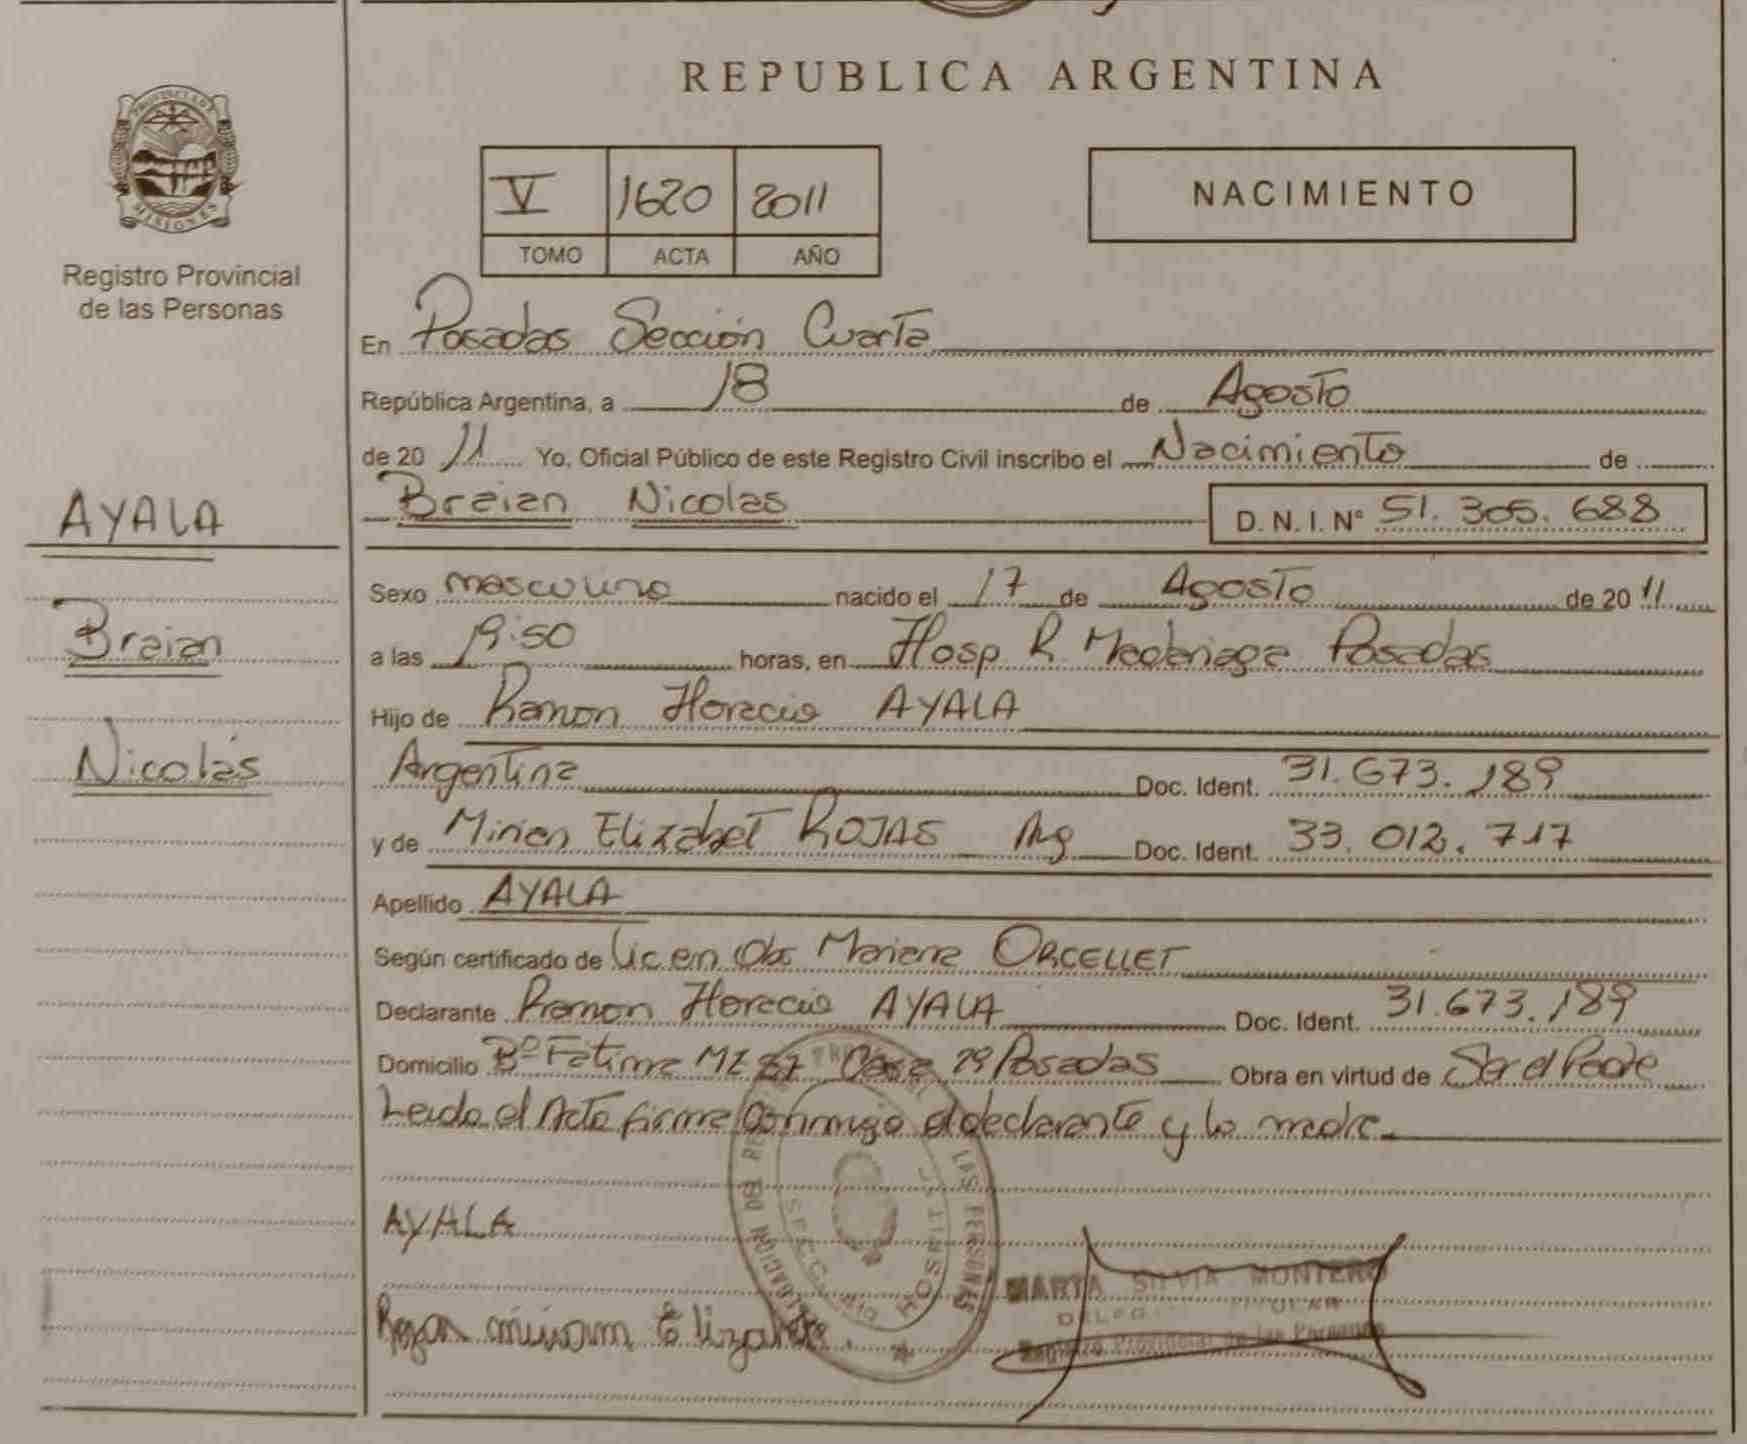 REPUBLICA ARGENTINA
PROVINCIA DE
MISIONES
Registro Provincial
de las Personas
V 1620 2011
TOMO ACTA AÑO
NACIMIENTO
AYALA
Braian
Nicolás
En Posadas Sección Cuarta
República Argentina, a 18 de Agosto
de 20 11 Yo, Oficial Público de este Registro Civil inscribo el Nacimiento de
Braian Nicolas D. N. I. Nº 51. 305. 688
Sexo masculino nacido el 17 de Agosto de 20 11
a las 19:50 horas, en Hosp R. Madariaga Posadas
Hijo de Ramon Horacio AYALA
Argentina Doc. Ident. 31.673.189
y de Mirian Elizabet ROJAS Arg Doc. Ident. 33.012.717
Apellido AYALA
Según certificado de Lic en Obs Mariana ORCELLET
Declarante Ramon Horacio AYALA Doc. Ident. 31.673.189
Domicilio Bº Fatima MZ 37 Casa 29 Posadas Obra en virtud de Ser el Padre
Leida el Acta firma conmigo el declarante y la madre
AYALA
miriam Elizabete.
MARTA SILVIA MONTERO
Registro Provincial de las Personas
LAS PERSONAS